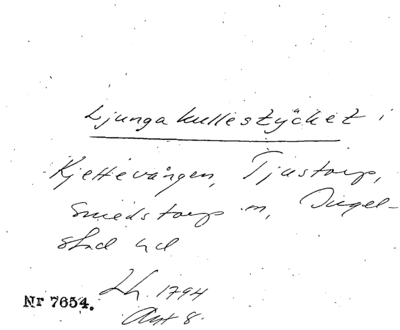 Ljungakullestycket i
Kjettevången, Tjustorp,
Smedstorp sn, Ingel-
stad hd
Lh. 1794
Akt 8.
Nr 7654.